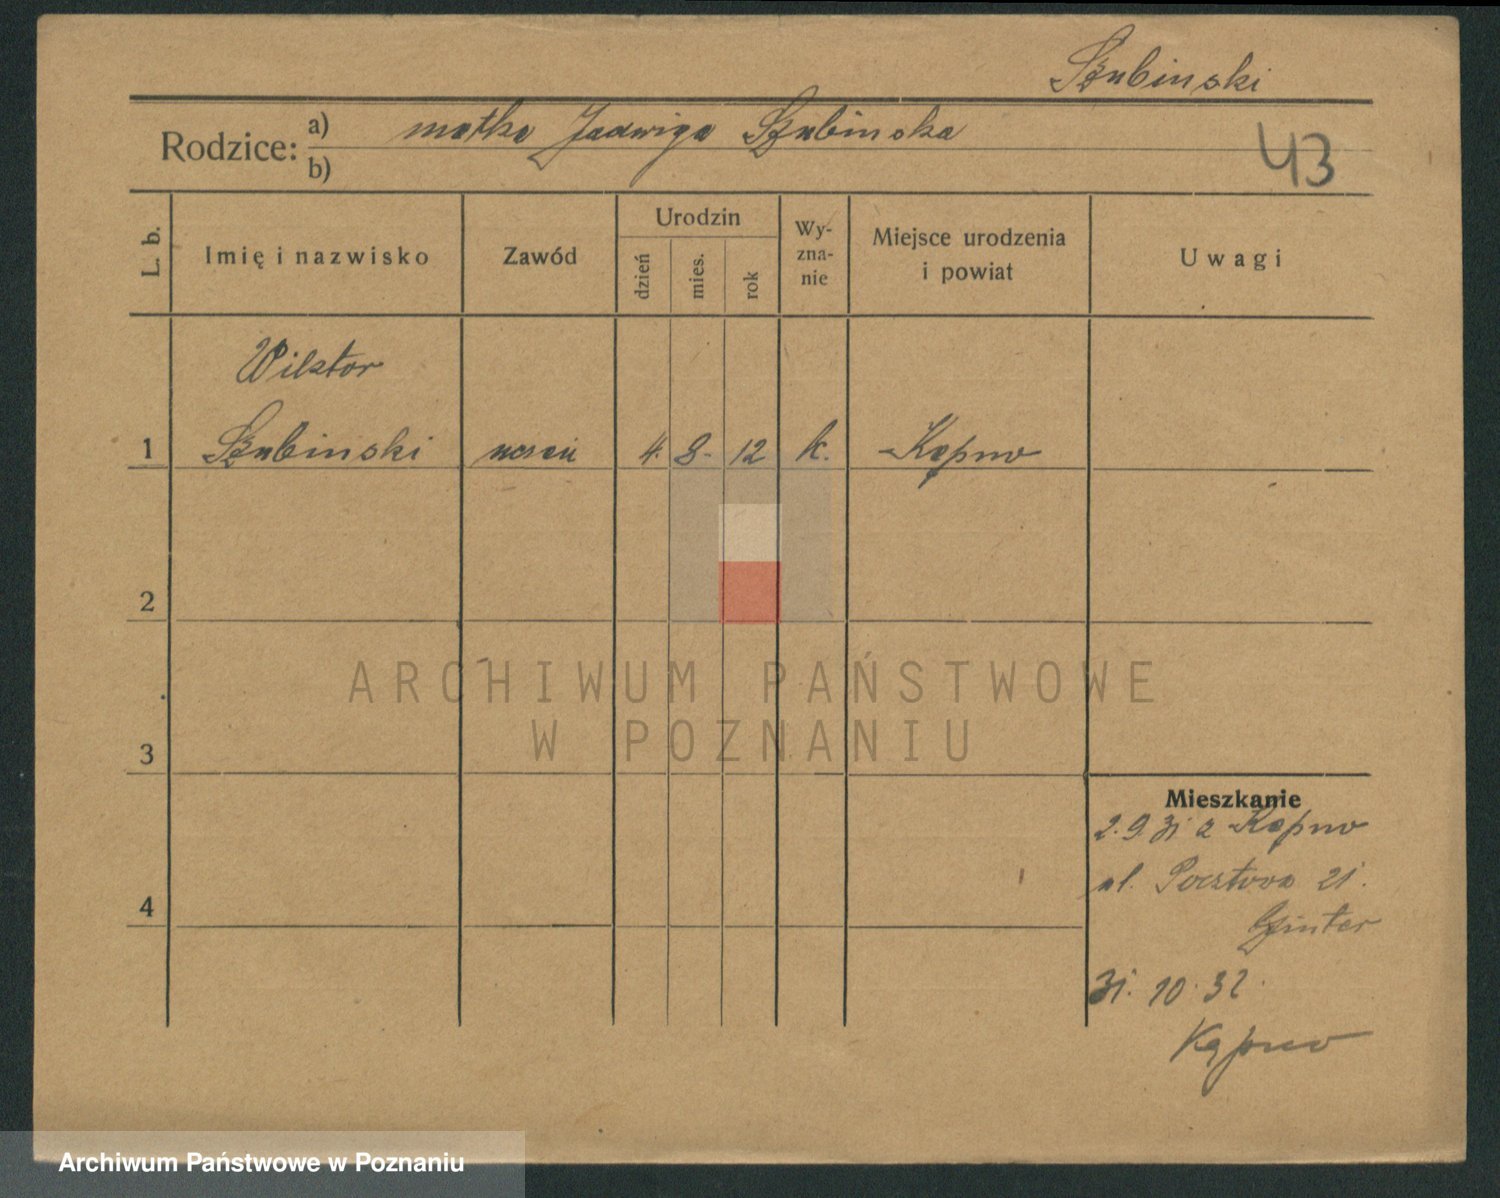 Szubinski
Rodzice:
a) matka Jadwiga Szubinska
b)
43
L. b.
Imię i nazwisko
Zawód
Urodzin
dzień
mies.
rok
Wy-
zna-
nie
Miejsce urodzenia
i powiat
Uwagi
Wiktor
1 Szubinski uczeń 4. 8. 12 k. Kępno
2
3
4
ARCHIWUM PAŃSTWOWE
W POZNANIU
Mieszkanie
2.9.31 z Kępno
ul. Pocztowa 21.
Ginter
31. 10. 32.
Kępno
Archiwum Państwowe w Poznaniu